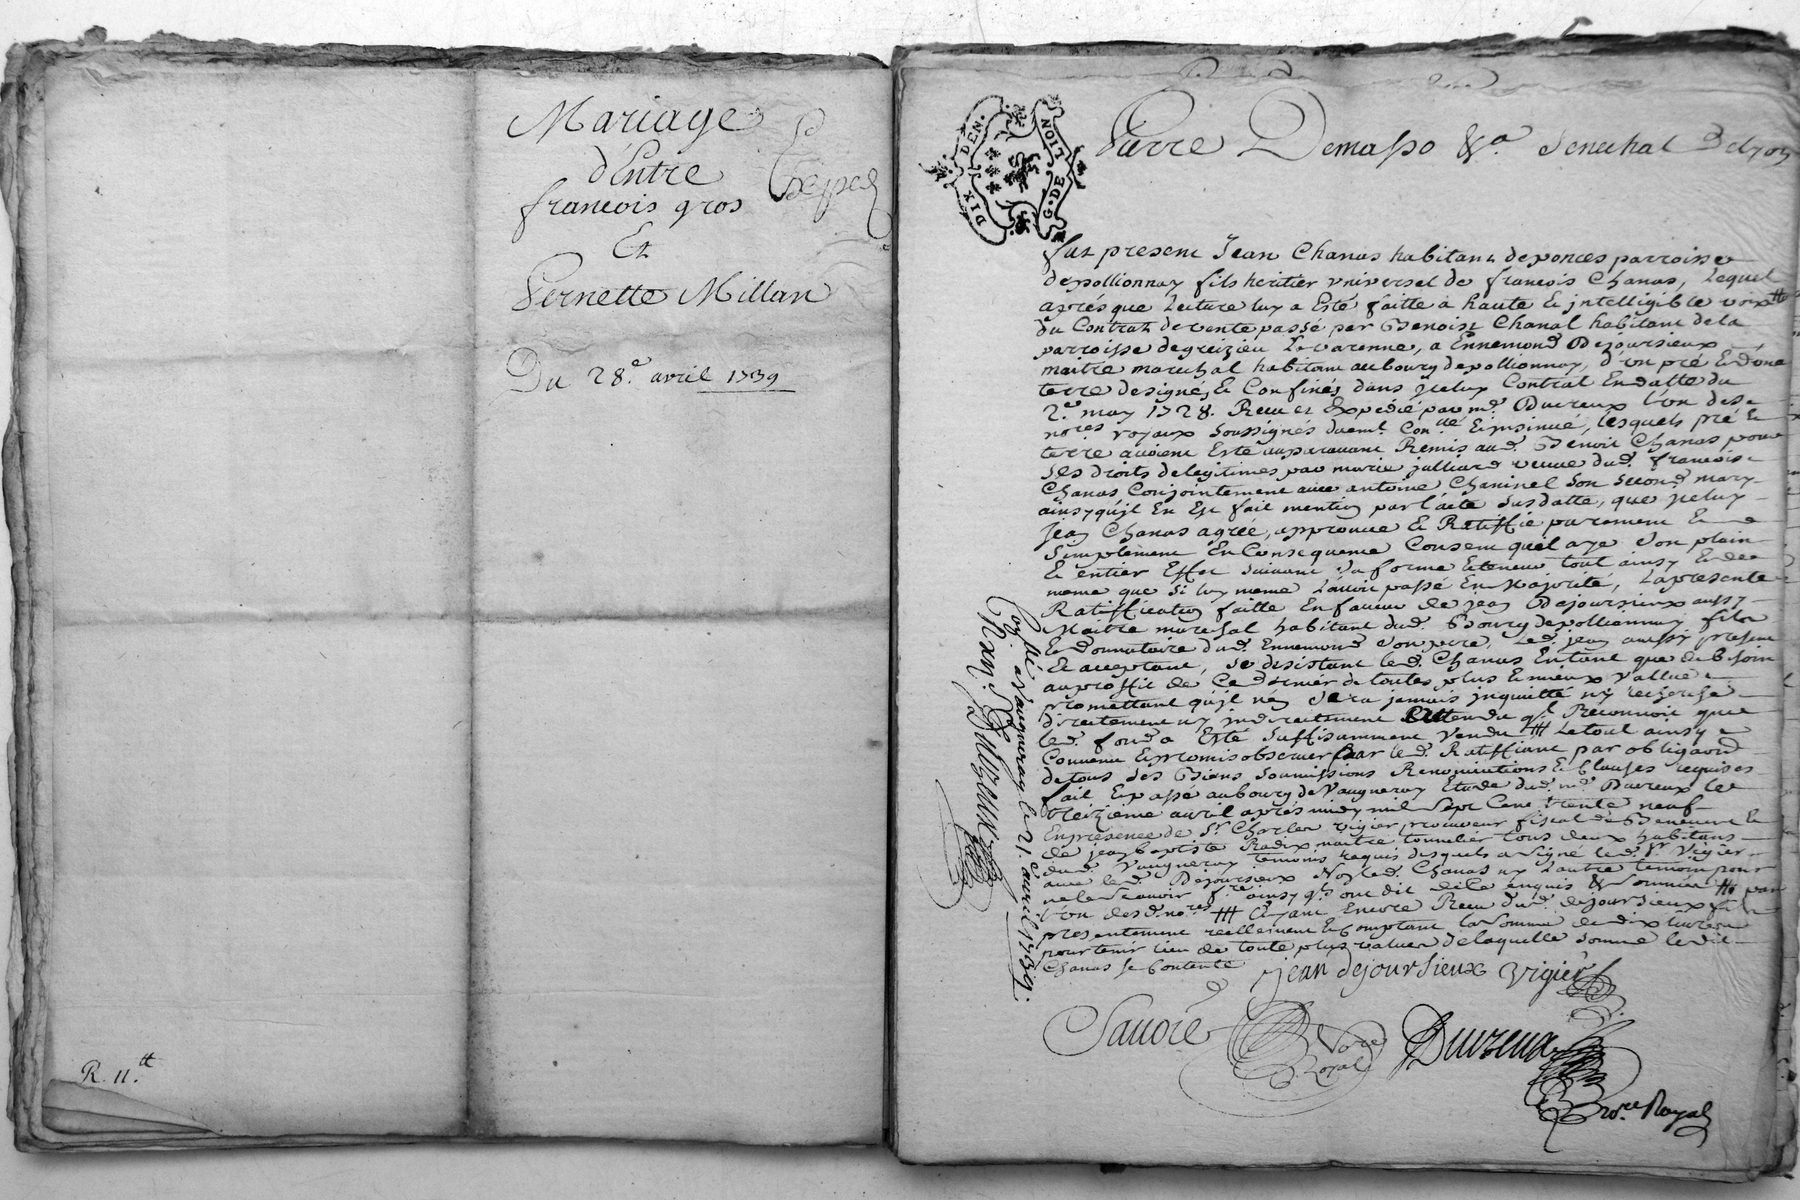 Mariage
d'Entre
francois gros
Et
Pernette Millan
Du 28.e avril 1739
R. 11.tt
DIX DEN.
G. DE LION
Pierre Demasso &.a Senechal Delyon
fut present Jean Chanas habitant deponces parroisse
depollionnay fils heritier vniversel de francois Chanas, Lequel
aprés que Lecture luy a Esté faitte a haute & jntelligible voix
du Contrat de vente passé par Benoist Chanal habitant de la
parroisse de greizieu Lavarenne, a Ennemond Dejoursieux
maitre marechal habitant au bourg depollionnay, d'un pré & d'une
terre designés & Confinés dans jceluy Contrat En datte du
2.e may 1728. Receu et Expedié par m.e Duvreux L'un des
no.res royaux soussignés duem.t Con.llé & jnsinué, lesquels pré &
terre avoient Esté auparavant Remis aud. Benoit Chanas pour
ses droits delegitimes par marie julliard veuve dud. francois
Chanas Conjointement avec antoine Chaninel son second mary
ainsy qu'jl En Est fait mention par l'acte susdatté, que jceluy
Jean Chanas agrée, approuve & Ratiffie purement &
simplement En Consequence Consent qu'il aye son plain
& entier Effet suivant sa forme & teneur tout ainsy & de
meme que si luy meme L'avoit passé En Majorité, La presente
Ratiffication faitte En faveur de jean Dejoursieux aussy
Maitre marechal habitant dud. Bourg depollionnay fils
& donnataire dud. Ennemond son pere, Led. jean aussy present
& acceptant, se desistant led. Chanas En tant que de besoin
au proffit de Ce dernier de toutes plus & mieux vallue
promettant qu'jl n'en sera jamais jnquietté ny recherché
directement ny jndirectement attendu q.l Reconnoit que
led. fond a Esté suffisamment vendu Le tout ainsy
Convenu & promis observer par led. Ratiffiant par obligaõn
de tous ses Biens soumissions Renonciations & Clauses requises
fait & passé au bourg de Vaugneray Etude dud. m.e Duvreux le
treizieme avril aprés midy mil sept Cent trente neuf
En presence de S.r Charles Vigier procureur fiscal de Benevent &
de jean baptiste Radix maitre tonnelier tous deux habitans
dud. Vaugneray temoins requis desquels a signé led. S.r Vigier
avec led. Dejoursieux Non led. Chanas ny L'autre temoin pour
ne le scavoir f.re ainsy q.ls ont dit de ce enquis & sommés par
l'un desd. no.res Ayant Encore Receu dud. dejoursieux fils
presentement reellement & comptant la somme de dix livres
pour tenir lieu de toute plus value de laquelle somme le dit
Chanas se Contente
jean dejoursieux Vigier
Sauore No.re Royal
Duvreux
No.re Royal
Con.llé a Vaugneray le 21.e avril 1739.